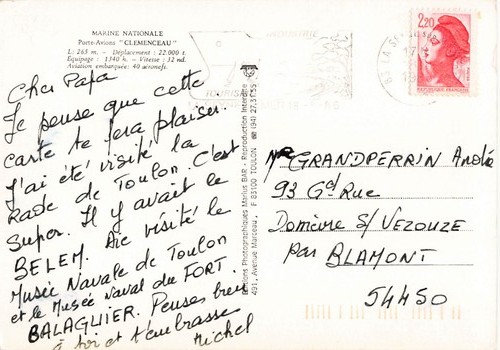 MARINE NATIONALE
Porte-Avions "CLEMENCEAU"
L: 265 m. - Déplacement: 22.000 t.
Equipage: 1340 h. - Vitesse: 32 nd.
Aviation embarquée: 40 aéronefs.
Cher Papa
Je pense que cette
carte te fera plaisir.
J'ai été visité la
Rade de Toulon. C'est
Super. Il y avait le
BELEM. visité le
Musée Navale de Toulon
et le Musée Naval du FORT
BALAGUIER. Penses bien
à toi et t'embrasse
Michel
Editions Photographiques Marius BAR - Reproduction Interdite
491, Avenue Marceau, F 83100 TOULON
LA SE
17
19
TOURIS
2,20
REPUBLIQUE FRANÇAISE
Mr GRANDPERRIN André
93 Gde Rue
Domèvre S/ VEZOUZE
par BLAMONT
54450